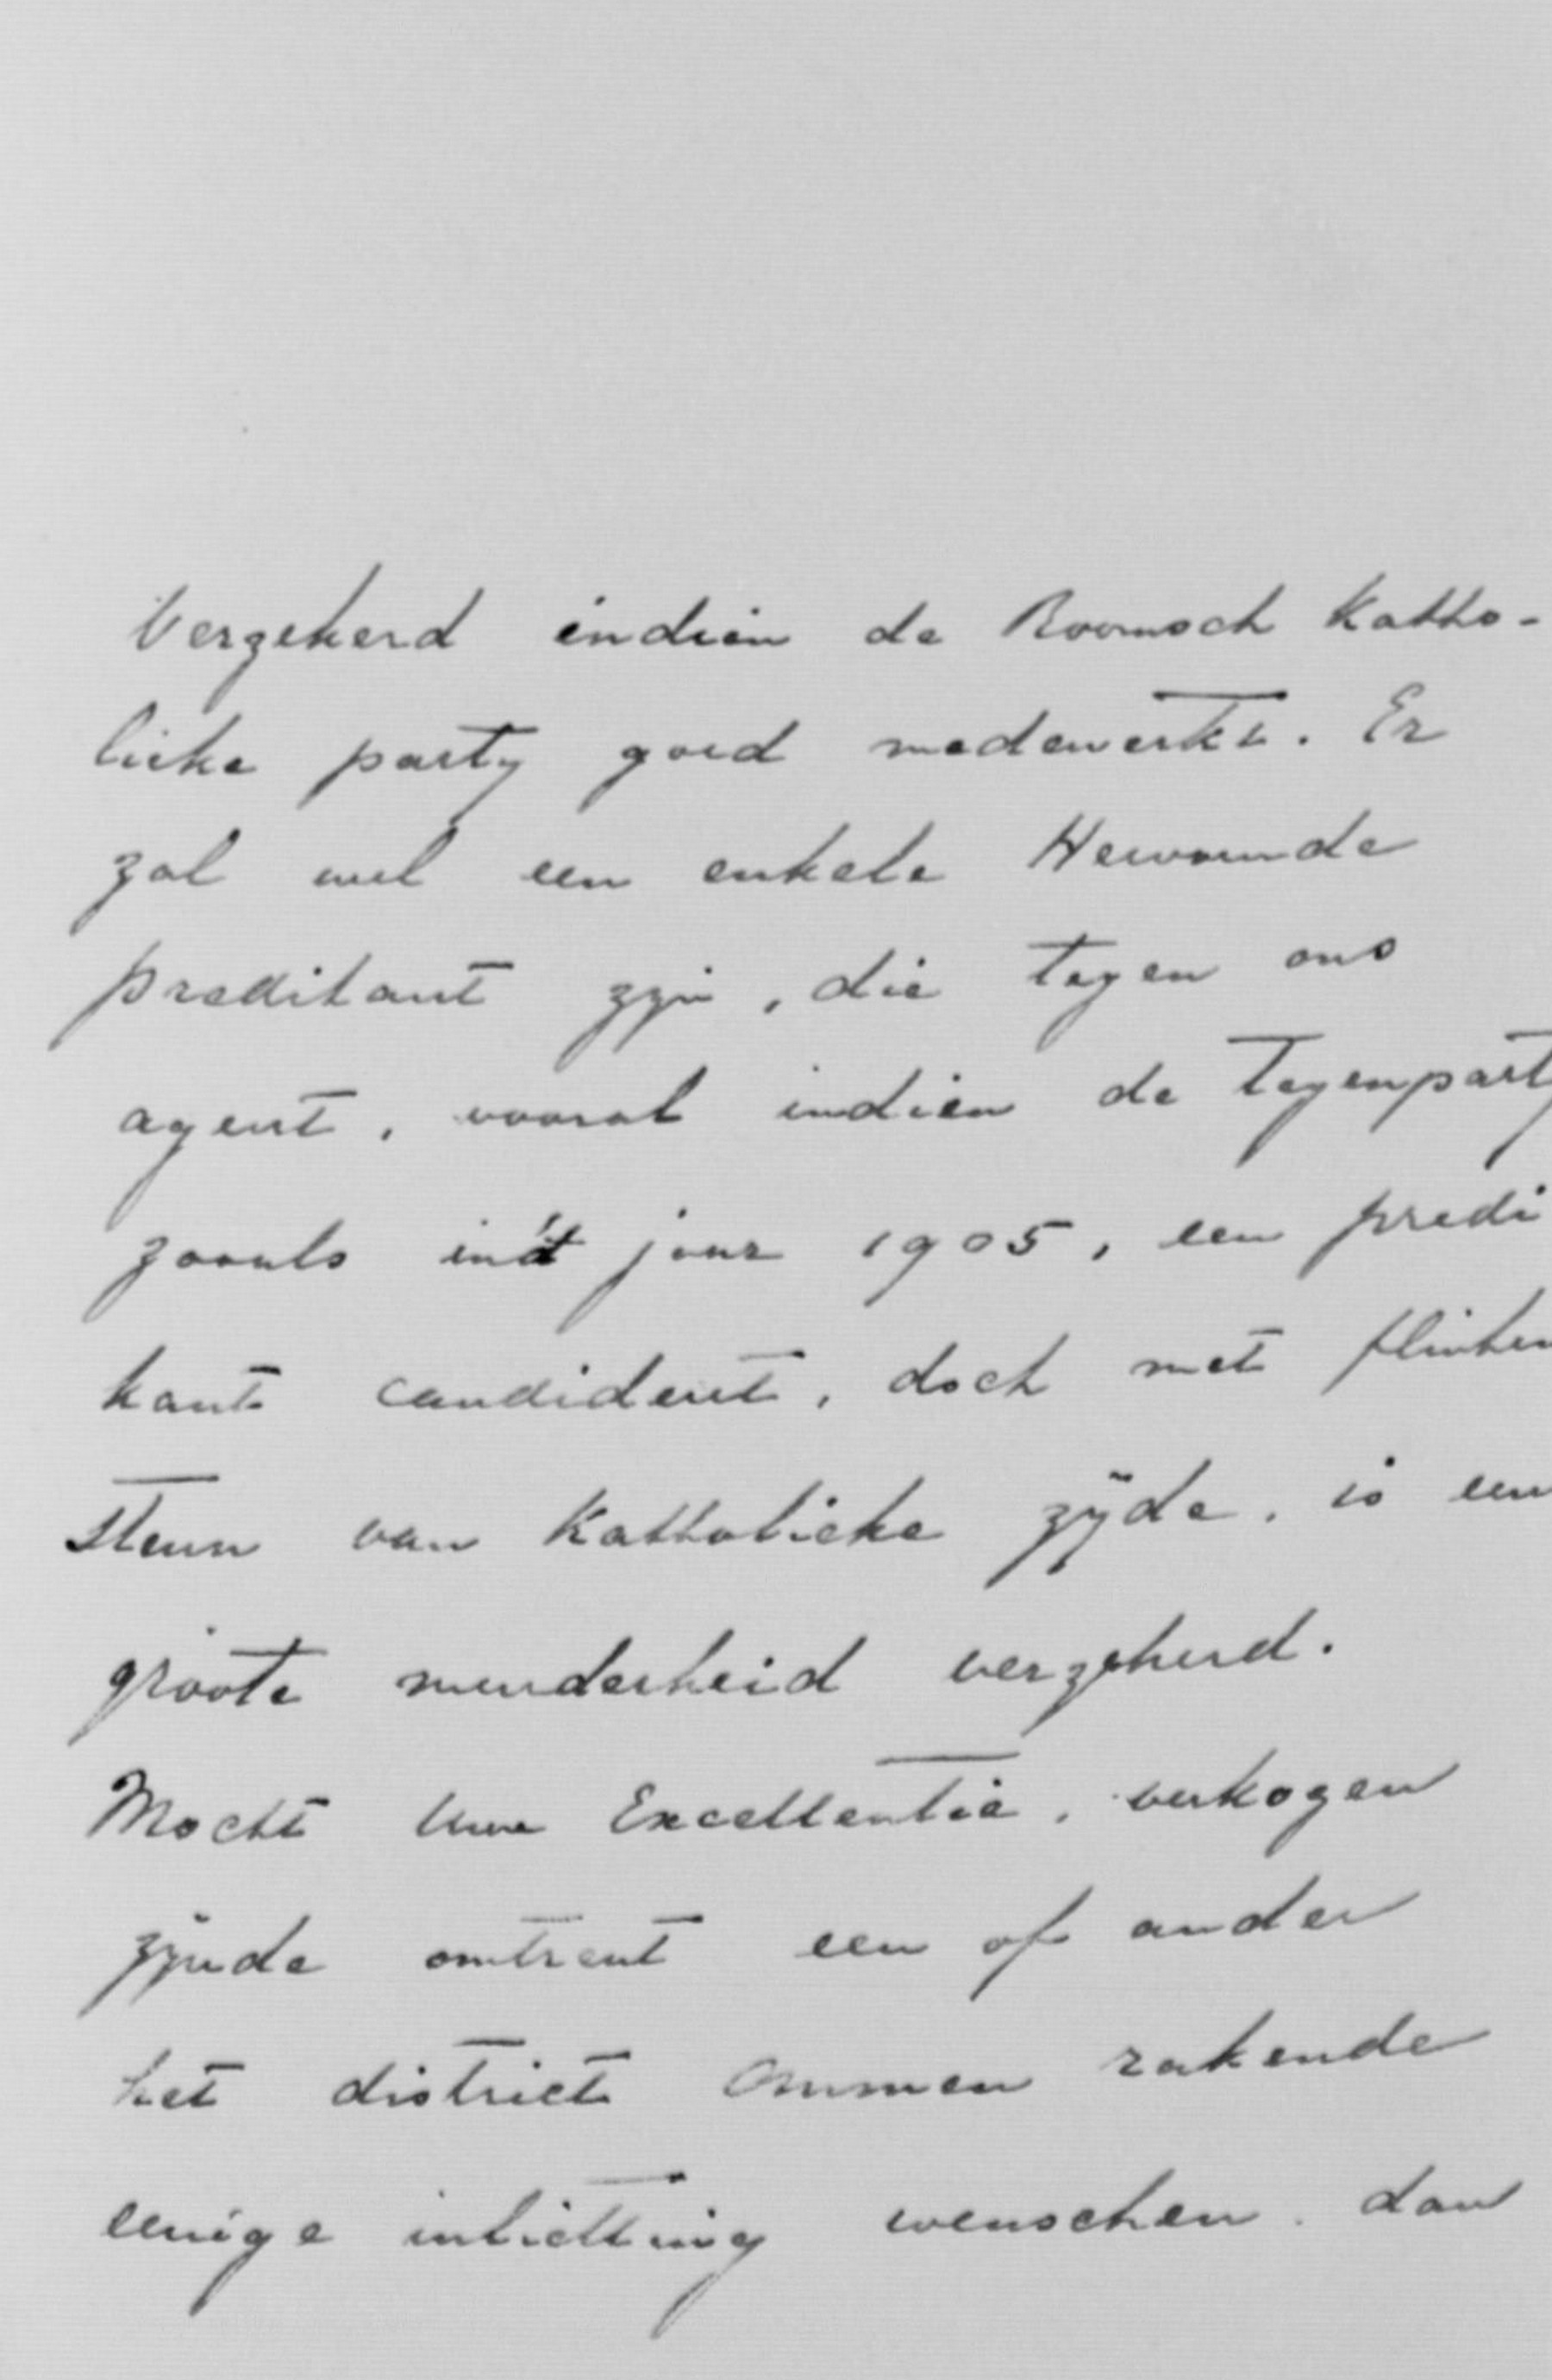 Verzekerd indien de Roomsch Katho-
lieke party goed medewerkt. Er
zal wel een enkele Hervormde
predikant zyn, die tegen ons
ageert, vooral indien de tegenparty
zooals in 't jaar 1905, een predi
kant candideert, doch met flinken
steun van Katholieke zÿde, is een
groote minderheid verzekerd.
Mocht Uwe Excellentie, verkozen
zynde omtrent een of ander
het district Ommen rakende
eenige inlichting wenschen. dan